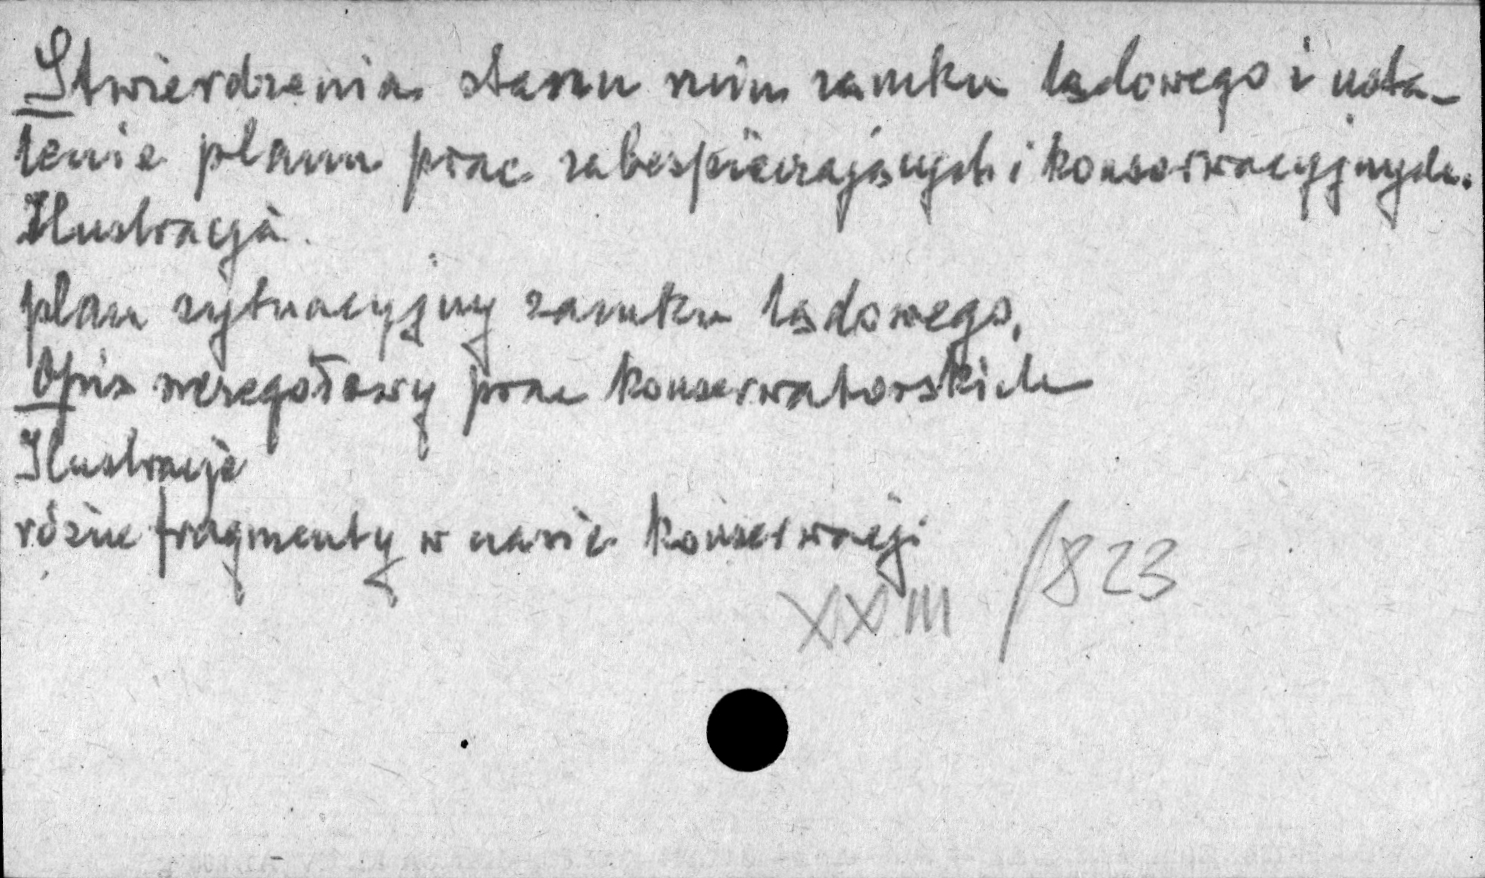 Stwierdzenia stanu ruin zamku lądowego i usta-
lenie planu prac zabezpieczających i konserwacyjnych.
Ilustracja.
plan sytuacyjny zamku lądowego,
Opis szczegółowy prac konserwatorskich
Ilustracje
różne fragmenty w czasie konserwacji
XXIII /823